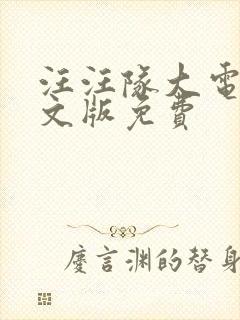 汪汪隊大電
文版免費
慶言渊的替身